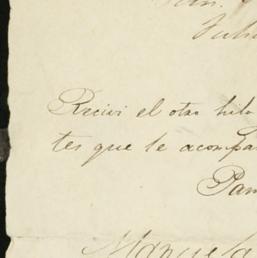 Recivi el otro hilo
tes que le acompa
Pam
Manuela